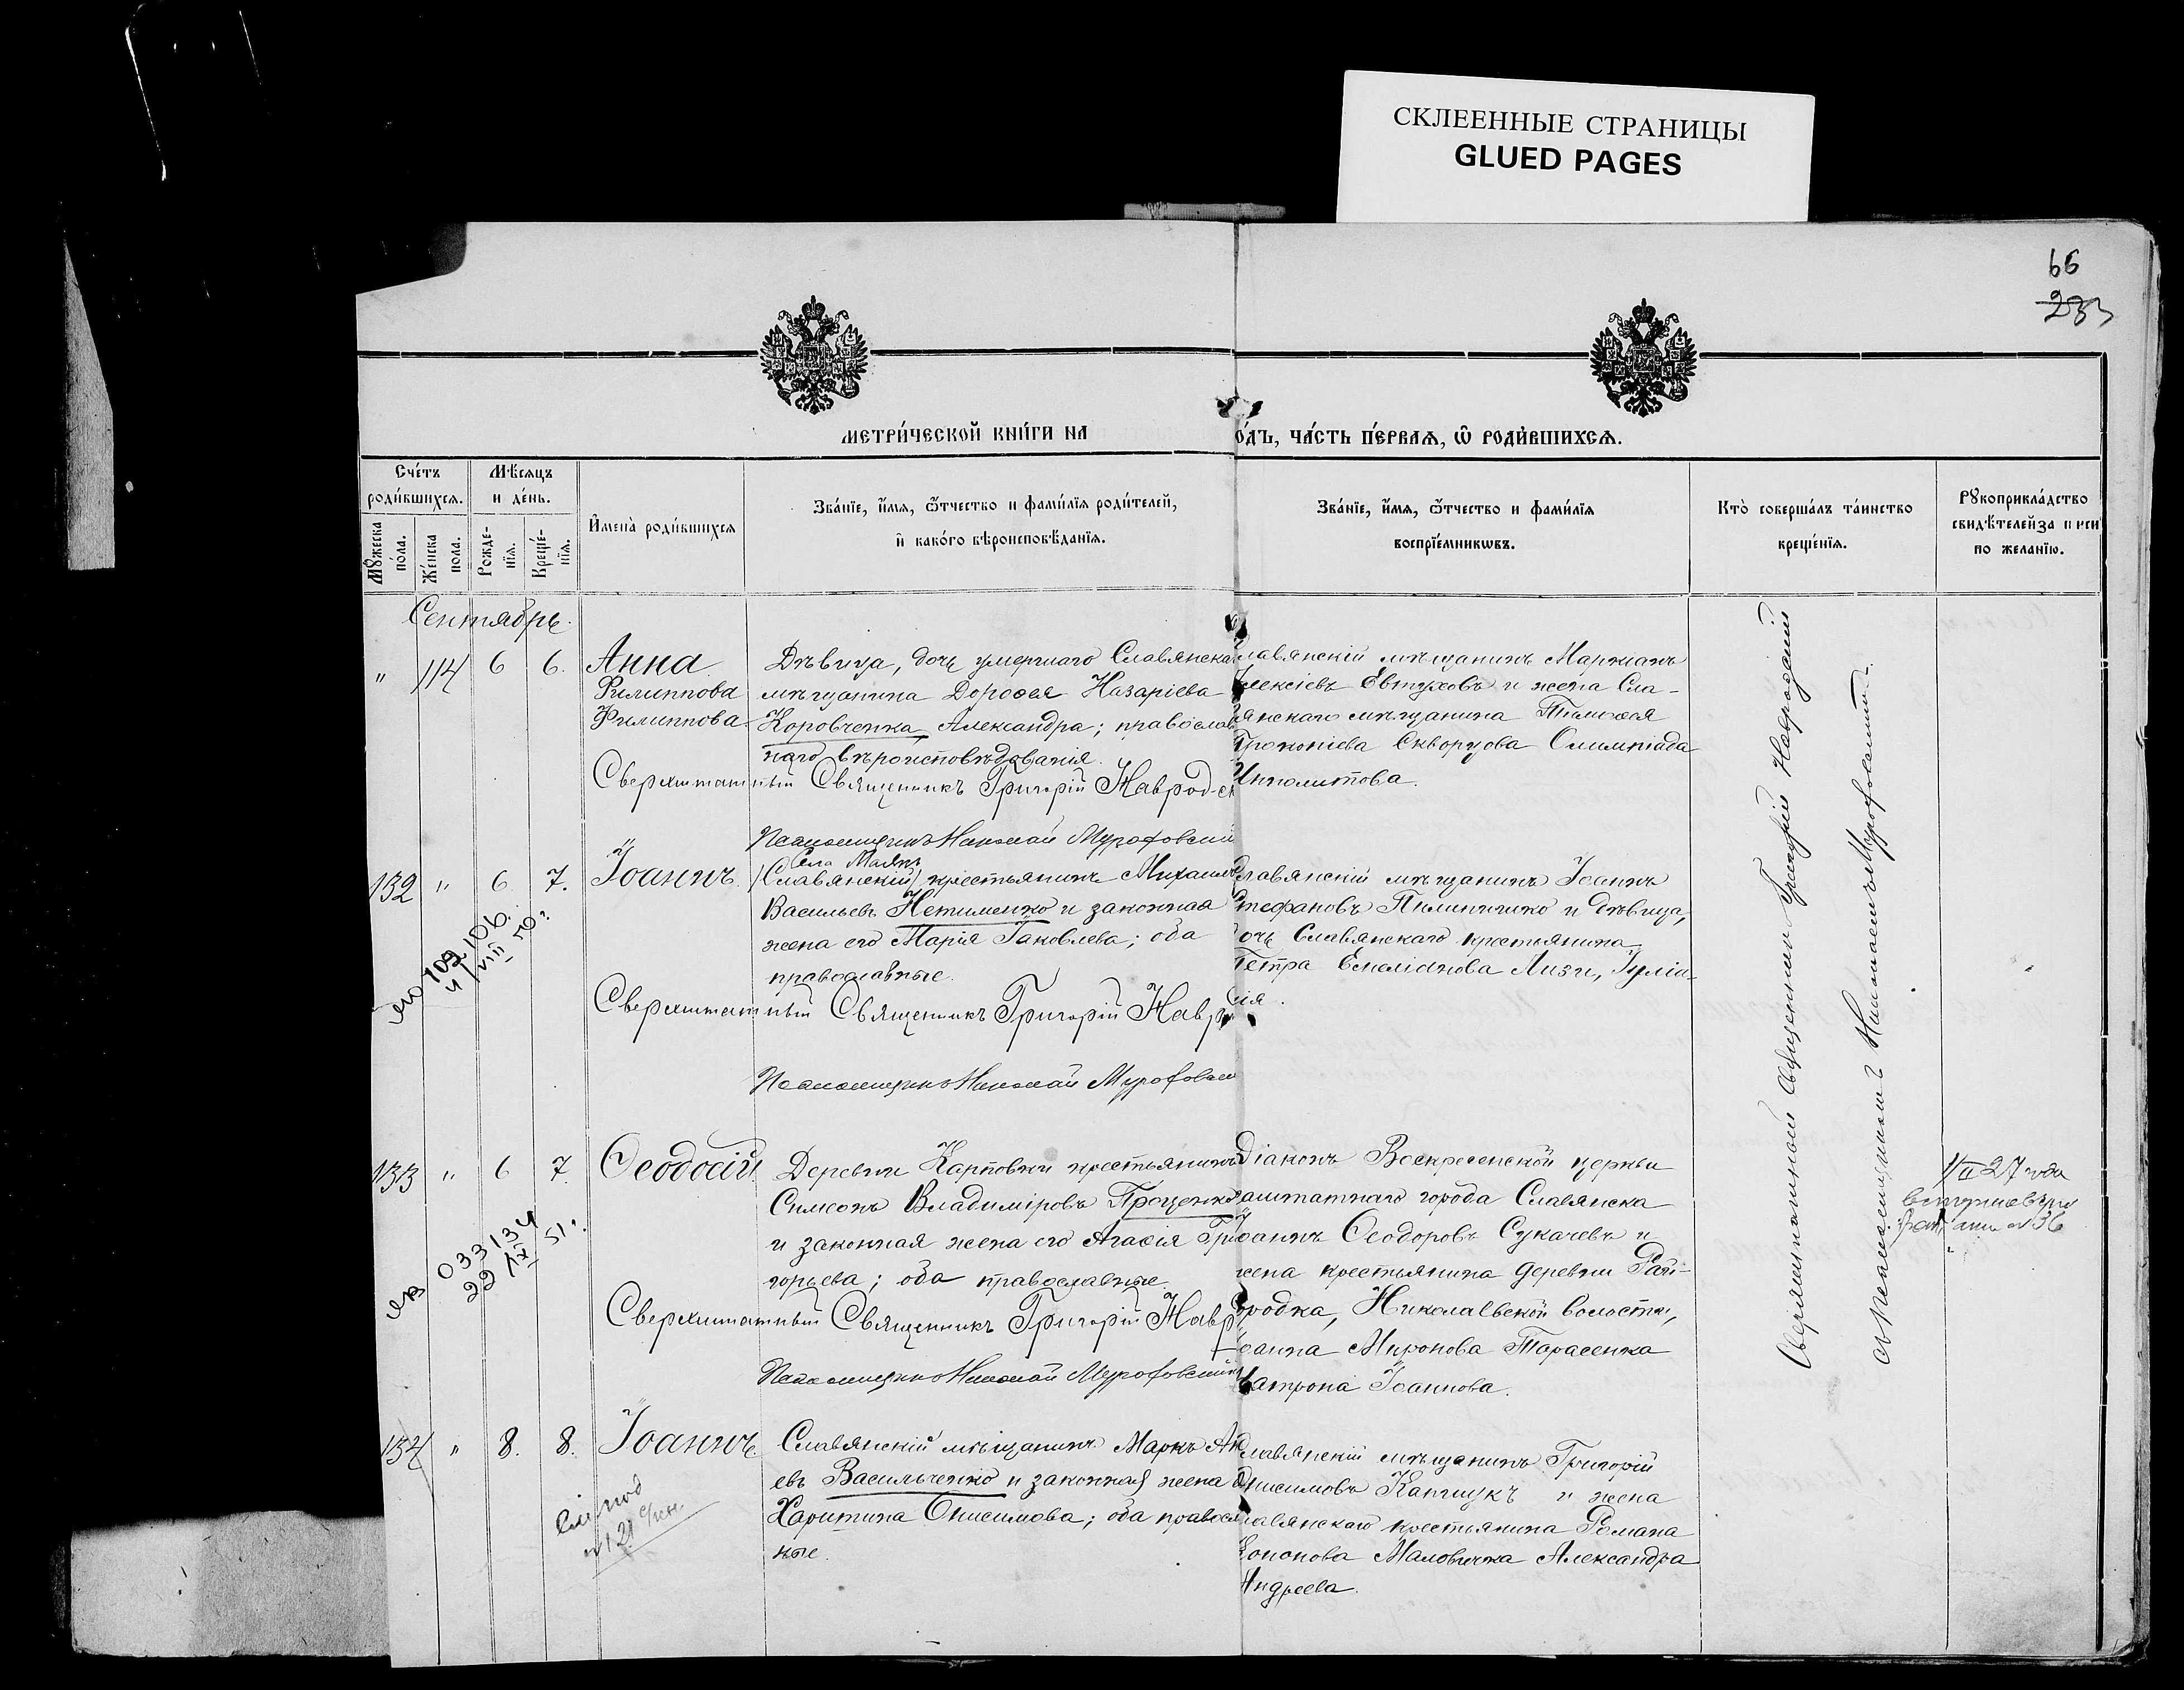 СКЛЕЕННЫЕ СТРАНИЦЫ
GLUED PAGES
66
233
МЕТРИ́ЧЕСКОЙ КНИ́ГИ НА
О́ДЪ, ЧА́СТЬ ПЕ́РВАѦ, Ѡ РОДИ́ВШИХСѦ.
Сче́тъ родившихсѧ.
Мѣ́сѧцъ и де́нь.
Мꙋ́жеска по́ла.
Же́нска пола.
Рожде-нїѧ.
Креще́-нїѧ.
И҆мена̀ роди́вшихсѧ
Зва́нїе, и҆́мѧ, ѻ҆́тчество и фами́лїѧ роди́телей,
и҆ како́гѡ вѣроисповѣ́данїѧ.
Зва́нїе, и҆́мѧ, ѻ҆́тчество и фами́лїѧ
воспрїе́мникѡвъ.
Кто̀ соверша́лъ та́инство
креще́нїѧ.
Рꙋкоприкла́дство
свидѣ́телей за
по жела́нїю.
Сентябрь.
" 114 6 6. Анна
Филиппова
Филиппова
Дѣвица, дочь умершаго Славянска
мѣщанина Дороѳея Назаріева
Коровченка, Александра; православ
наго вѣроисповѣдованія.
Сверхштатный Священникъ Григорій Наврод-с
Псаломщикъ Николай Мурофовскій
лавянскій мѣщанинъ Маркіанъ
лексіевъ Евтуховъ и жена Сла-
янскаго мѣщанина Тимоѳея
Прокопіева Скворцова Олимпіада
Ипполитова.
132 " 6 7. Іоаннъ
Села Маякъ
(Славянскій) крестьянинъ Михаилъ
Васильевъ Нетименко и законная
жена его Марія Іаковлева; оба
православные.
Сверхштатный Священникъ Григорій Навр
Псаломщикъ Николай Мурофовск
лавянскій мѣщанинъ Іоаннъ
Стефановъ Пилипчико и дѣвица,
очь Славянскаго крестьянина
Петра Емеліанова Лизы, Іуліа-
нія.
109 106
4/VIII 50 г.
133 " 6 7. Ѳеодосій
Деревни Карповки крестьянинъ
Симеонъ Владиміровъ Проценко
и законная жена его Агаѳія Гри
горьева; оба православные.
Сверхштатный Священникъ Григорій Навр
Псаломщикъ Николай Мурофовскій
Діаконъ Воскресенской церкви
заштатнаго города Славянска
Іоаннъ Ѳеодоровъ Сукачевъ и
жена крестьянина деревни Рай-
городка, Николаевской волости,
Іоанна Миронова Тарасенка
Матрона Іоаннова.
033134
22 IX 51 г.
1/II 27 года
№ 36
134 " 8. 8. Іоаннъ
Славянскій мѣщанинъ Маркъ Ан
евъ Васильченко и законная жена
Харитина Онисимова; оба правосл
ные.
лавянскій мѣщанинъ Григорій
Онисимовъ Капшукъ и жена
лавянскаго крестьянина Романа
Кононова Маловичка Александра
Андреева.
№ 121
Сверхштатный Священникъ Григорій Навродскій
съ Псаломщикомъ Николаемъ Мурофовскимъ.